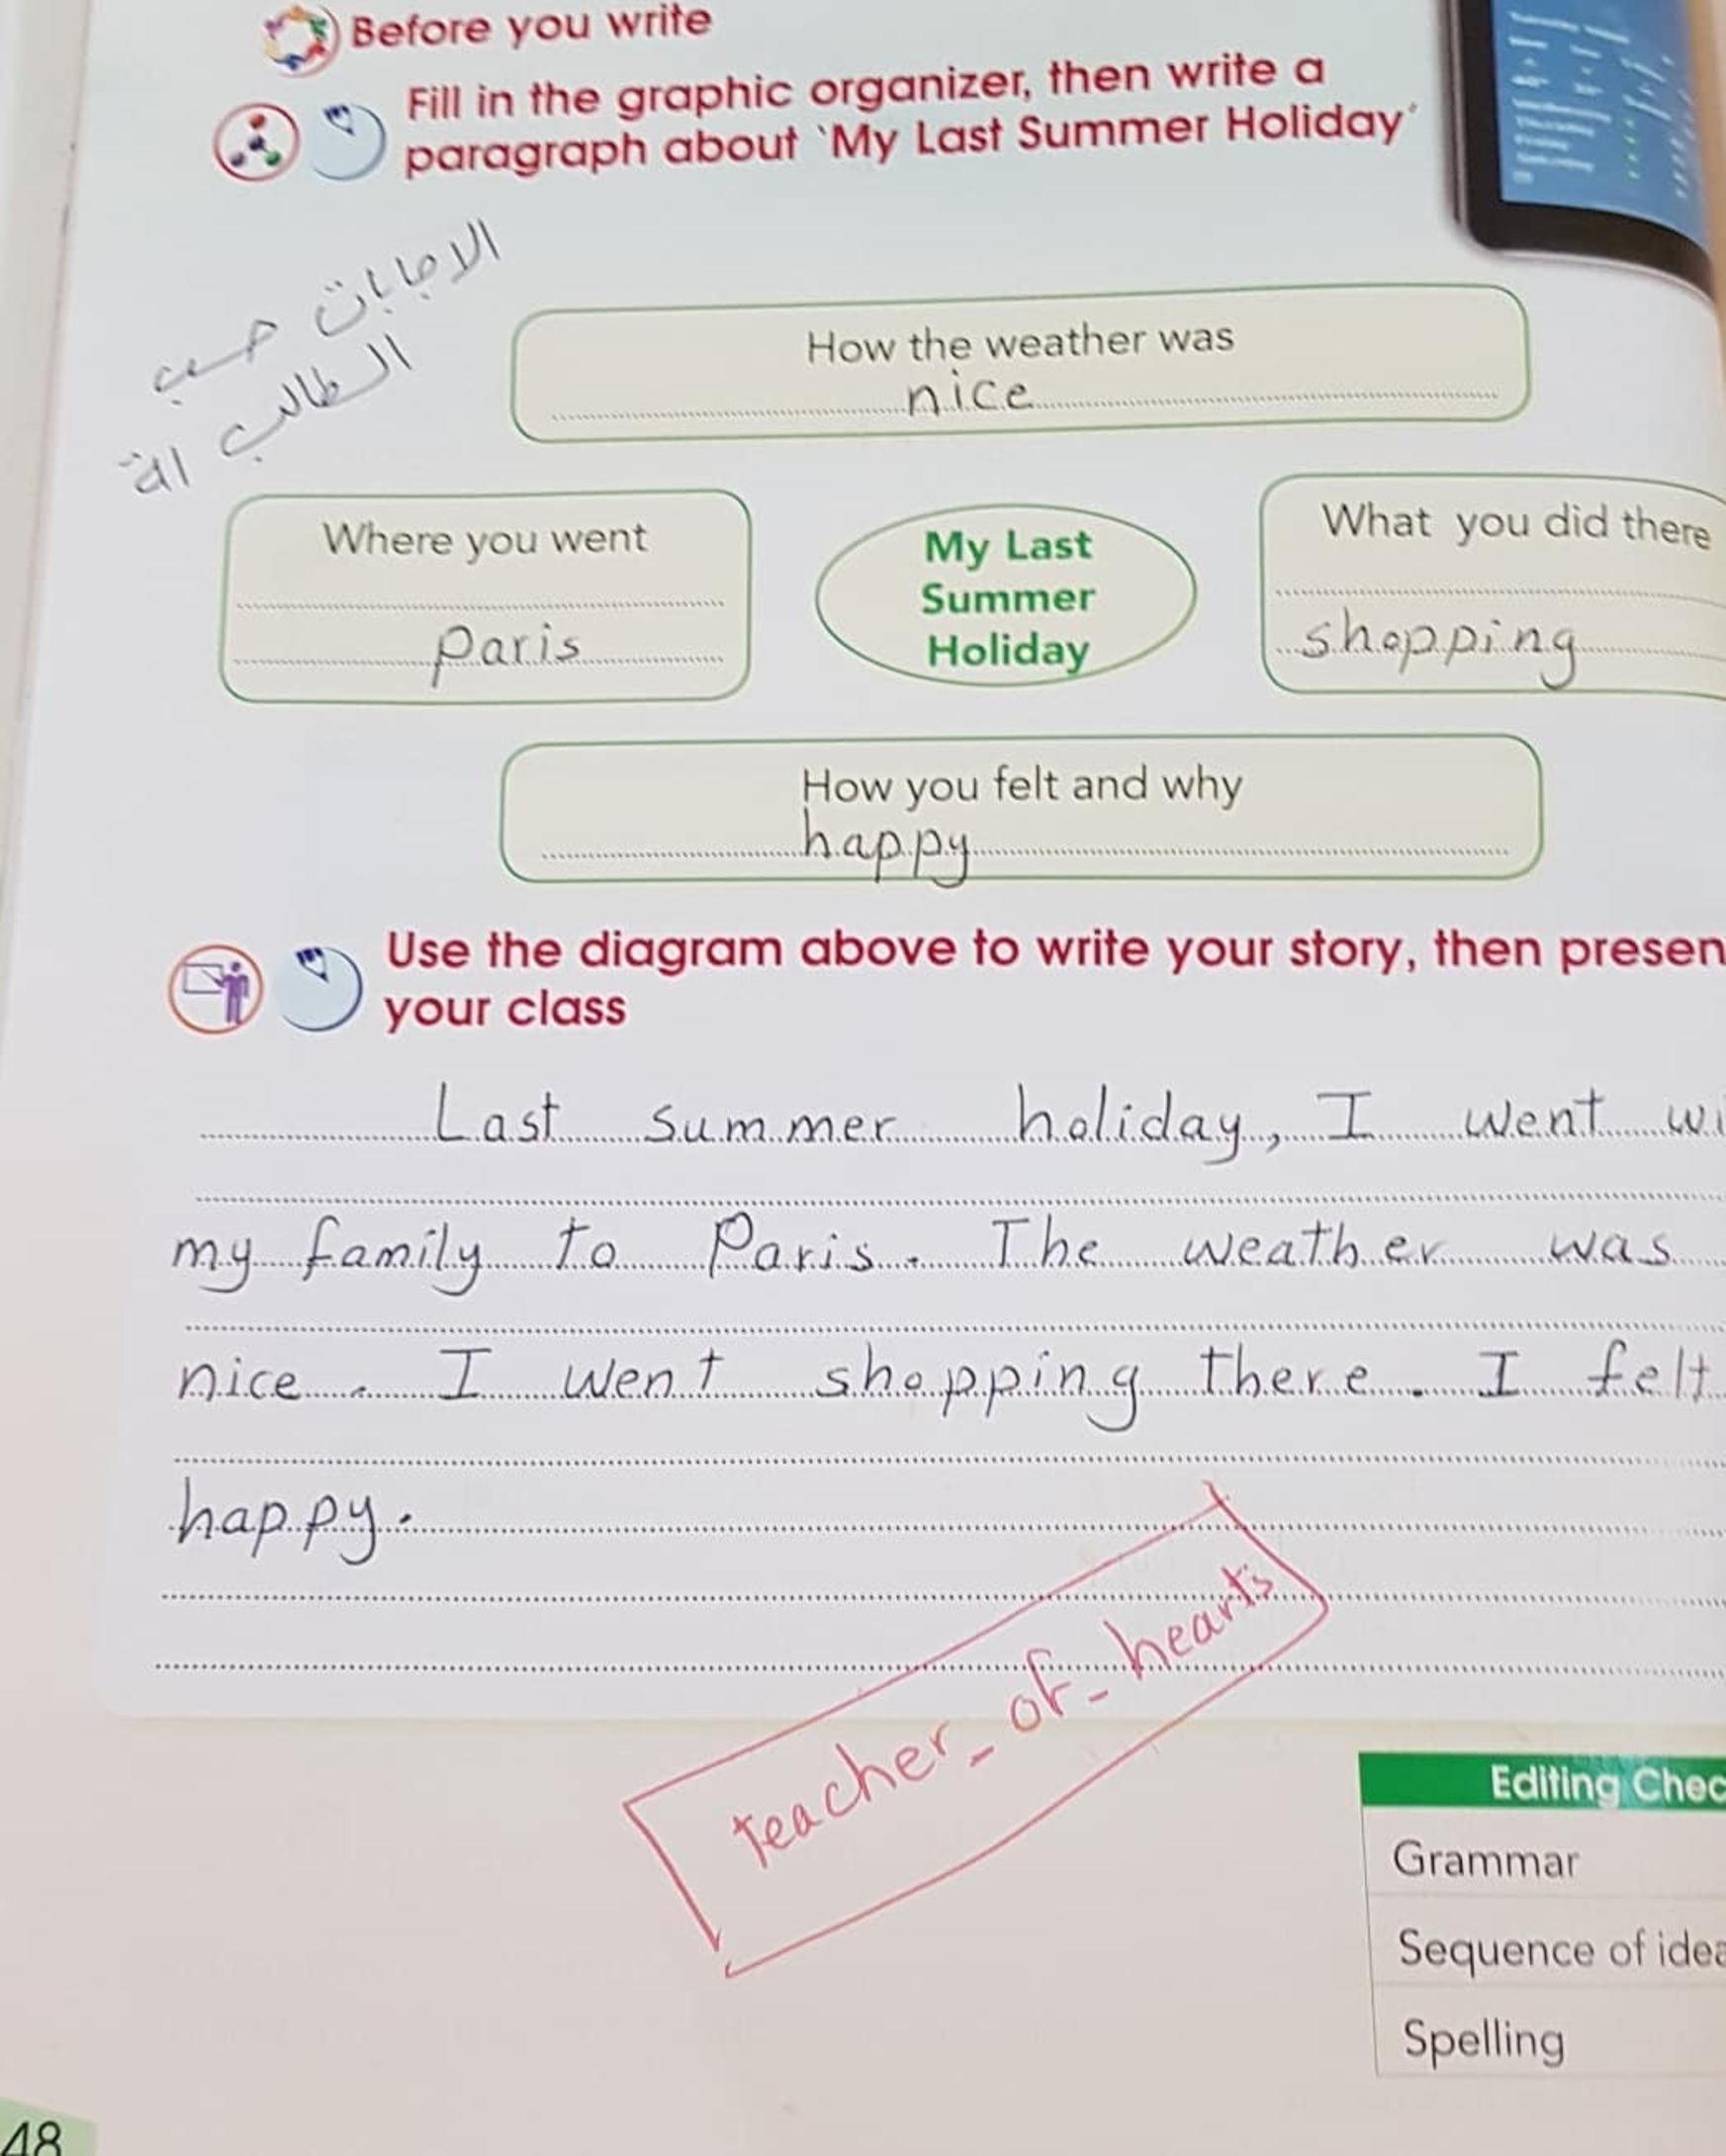 Before you write
Fill in the graphic organizer, then write a
paragraph about 'My Last Summer Holiday'
الاجابات حسب
الطالب
How the weather was
nice
Where you went
paris
My Last
Summer
Holiday
What you did there
shopping
How you felt and why
happy
Use the diagram above to write your story, then presen
your class
Last summer holiday, I went wi
my family to Paris. The weather was
nice. I went shopping there. I felt
happy.
teacher_of_hearts
Editing Chec
Grammar
Sequence of idea
Spelling
48